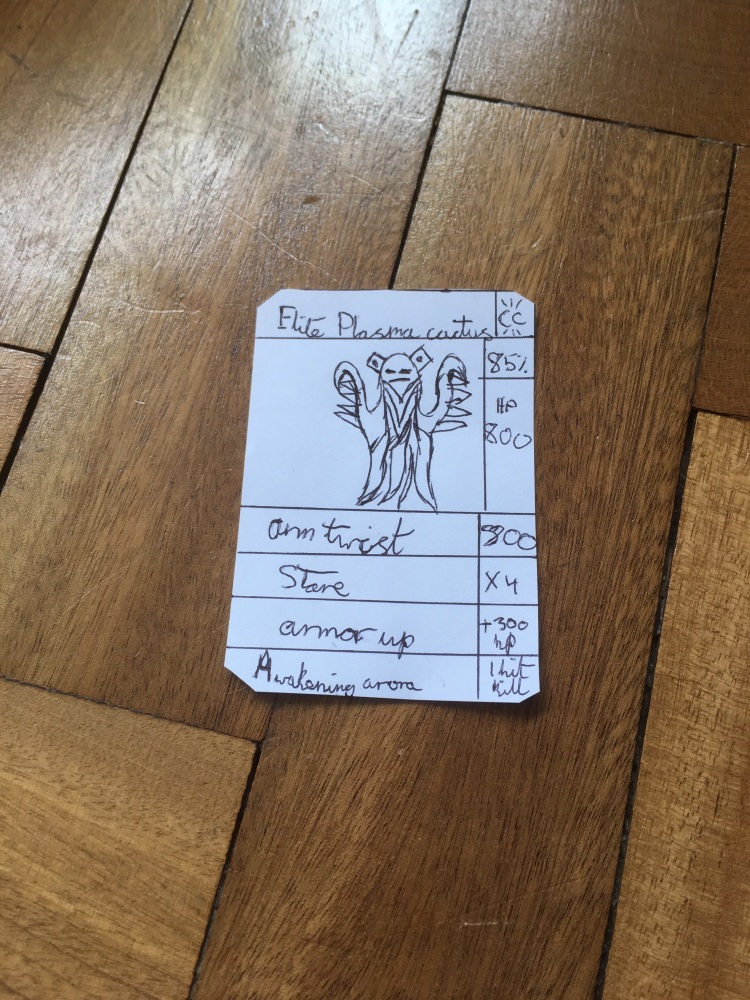 Elite Plasma cactus CC
85%
HP
800
arm twist 800
Stare X4
armor up +300 hp
Awakening arora 1 hit kill